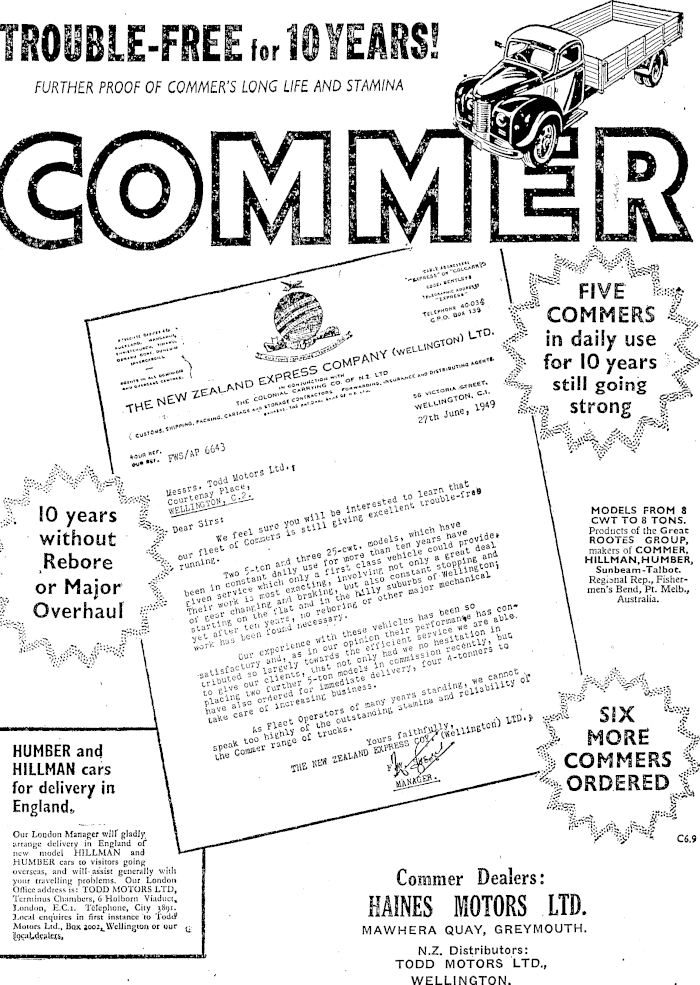 TROUBLE-FREE for 10 YEARS!
FURTHER PROOF OF COMMER'S LONG LIFE AND STAMINA
COMMER
CABLE ADDRESSES
"EXPRESS" OR "COLCARCO"
CODE: BENTLEY'S
TELEGRAPHIC ADDRESS
"EXPRESS"
TELEPHONE 40-036
C.P.O. BOX 135
THE NEW ZEALAND EXPRESS COMPANY (WELLINGTON) LTD.
IN CONJUNCTION WITH
THE COLONIAL CARRYING CO. OF N.Z. LTD
( CUSTOMS, SHIPPING, PACKING, CARTAGE AND STORAGE CONTRACTORS. FORWARDING, INSURANCE AND DISTRIBUTING AGENTS.
BANKERS, THE NATIONAL BANK OF N.Z. LTD.
56 VICTORIA STREET,
WELLINGTON, C.1.
27th June, 1949
YOUR REF.
OUR REF. FWS/AP 6643
Messrs. Todd Motors Ltd.,
Courtenay Place,
WELLINGTON, C.2.
Dear Sirs:
We feel sure you will be interested to learn that
our fleet of Commers is still giving excellent trouble-free
running.
Two 5-ton and three 25-cwt. models, which have
been in constant daily use for more than ten years have
given service which only a first class vehicle could provide.
Their work is most exacting, involving not only a great deal
of gear changing and braking, but also constant stopping and
starting on the flat and in the hilly suburbs of Wellington;
yet after ten years, no reboring or other major mechanical
work has been found necessary.
Our experience with these vehicles has been so
satisfactory and, as in our opinion their performance has con-
tributed so largely towards the efficient service we are able
to give our clients, that not only had we no hesitation in
placing two further 5-ton models in commission recently, but
have also ordered for immediate delivery, four 4-tonners to
take care of increasing business.
As Fleet Operators of many years standing, we cannot
speak too highly of the outstanding stamina and reliability of
the Commer range of trucks.
Yours faithfully,
THE NEW ZEALAND EXPRESS COY. (Wellington) LTD.,
MANAGER.
FIVE
COMMERS
in daily use
for 10 years
still going
strong
10 years
without
Rebore
or Major
Overhaul
MODELS FROM 8
CWT TO 8 TONS.
Products of the Great
ROOTES GROUP,
makers of COMMER,
HILLMAN, HUMBER,
Sunbeam-Talbot.
Regional Rep., Fisher-
men's Bend, Pt. Melb.,
Australia.
SIX
MORE
COMMERS
ORDERED
C6.9
HUMBER and
HILLMAN cars
for delivery in
England.
Our London Manager will gladly
arrange delivery in England of
new model HILLMAN and
HUMBER cars to visitors going
overseas, and will assist generally with
your travelling problems. Our London
Office address is: TODD MOTORS LTD,
Terminus Chambers, 6 Holborn Viaduct,
London, E.C.1. Telephone, City 3891.
Local enquires in first instance to Todd
Motors Ltd., Box 2002, Wellington or our
local dealers.
Commer Dealers:
HAINES MOTORS LTD.
MAWHERA QUAY, GREYMOUTH.
N.Z. Distributors:
TODD MOTORS LTD.,
WELLINGTON.